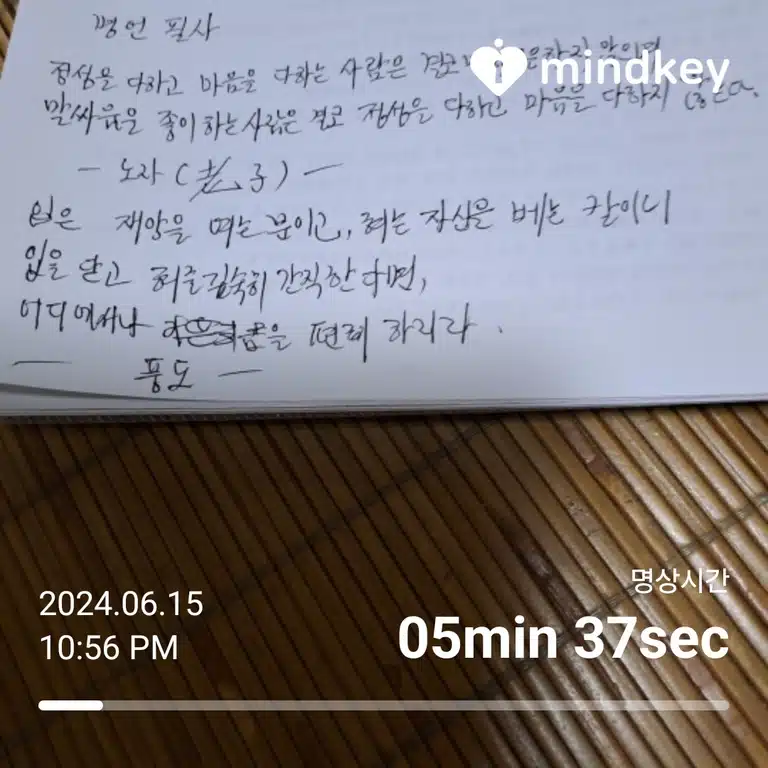 명언 필사
mindkey
정성을 다하고 마음을 다하는 사람은 결코 않으며
말싸움을 좋이 하는 사람은 결코 정성을 다하고 마음을 다하지 않는다.
— 노자 (老子) —
입은 재앙을 여는 문이고, 혀는 자신을 베는 칼이니
입을 닫고 혀를 깊숙히 간직한다면,
어디에서나 몸을 편례 하리라.
— 풍도 —
명상시간
2024.06.15
10:56 PM
05min 37sec